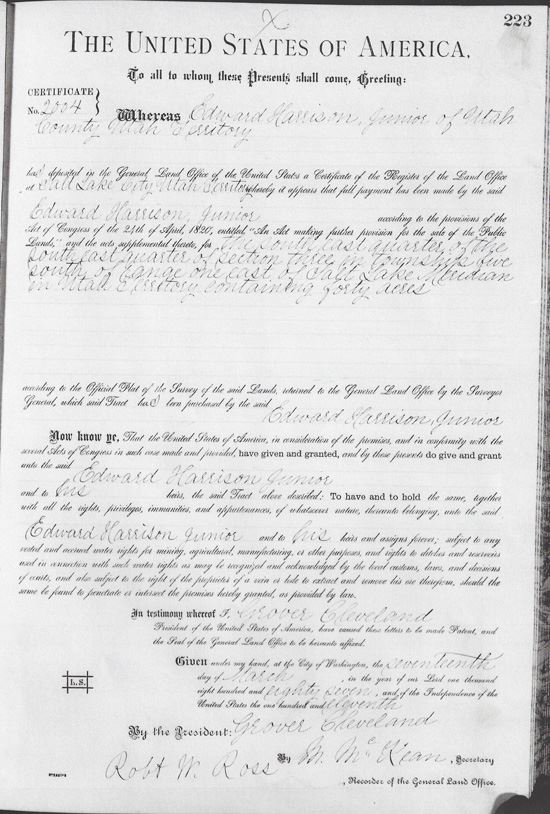 223
THE UNITED STATES OF AMERICA,
To all to whom these Presents shall come, Greeting:
CERTIFICATE
No. 2004
Whereas Edward Harrison, Junior of Utah
County Utah Territory
has deposited in the General Land Office of the United States a Certificate of the Register of the Land Office
at Salt Lake City, Utah Territory, whereby it appears that full payment has been made by the said
Edward Harrison, Junior according to the provisions of the
Act of Congress of the 24th of April, 1820, entitled "An Act making further provision for the sale of the Public
Lands," and the acts supplemental thereto, for the South East quarter of the
South East quarter of Section three in township five
South of Range one East of Salt Lake Meridian
in Utah Territory containing forty acres
according to the Official Plat of the Survey of the said Lands, returned to the General Land Office by the Surveyor
General, which said Tract has been purchased by the said
Edward Harrison, Junior
Now know ye, That the United States of America, in consideration of the premises, and in conformity with the
several Acts of Congress in such case made and provided, have given and granted, and by these presents do give and grant
unto the said Edward Harrison Junior
and to his heirs, the said Tract above described: To have and to hold the same, together
with all the rights, privileges, immunities, and appurtenances, of whatsoever nature, thereunto belonging, unto the said
Edward Harrison Junior and to his heirs and assigns forever; subject to any
vested and accrued water rights for mining, agricultural, manufacturing, or other purposes, and rights to ditches and reservoirs
used in connection with such water rights as may be recognized and acknowledged by the local customs, laws, and decisions
of courts, and also subject to the right of the proprietor of a vein or lode to extract and remove his ore therefrom, should the
same be found to penetrate or intersect the premises hereby granted, as provided by law.
In testimony whereof I, Grover Cleveland
President of the United States of America, have caused these letters to be made Patent, and
the Seal of the General Land Office to be hereunto affixed.
Given under my hand, at the City of Washington, the seventeenth
day of March, in the year of our Lord one thousand
eight hundred and eighty seven, and of the Independence of the
United States the one hundred and eleventh
L.S.
By the President: Grover Cleveland
By M. McKean, Secretary
Robt W. Ross, Recorder of the General Land Office.